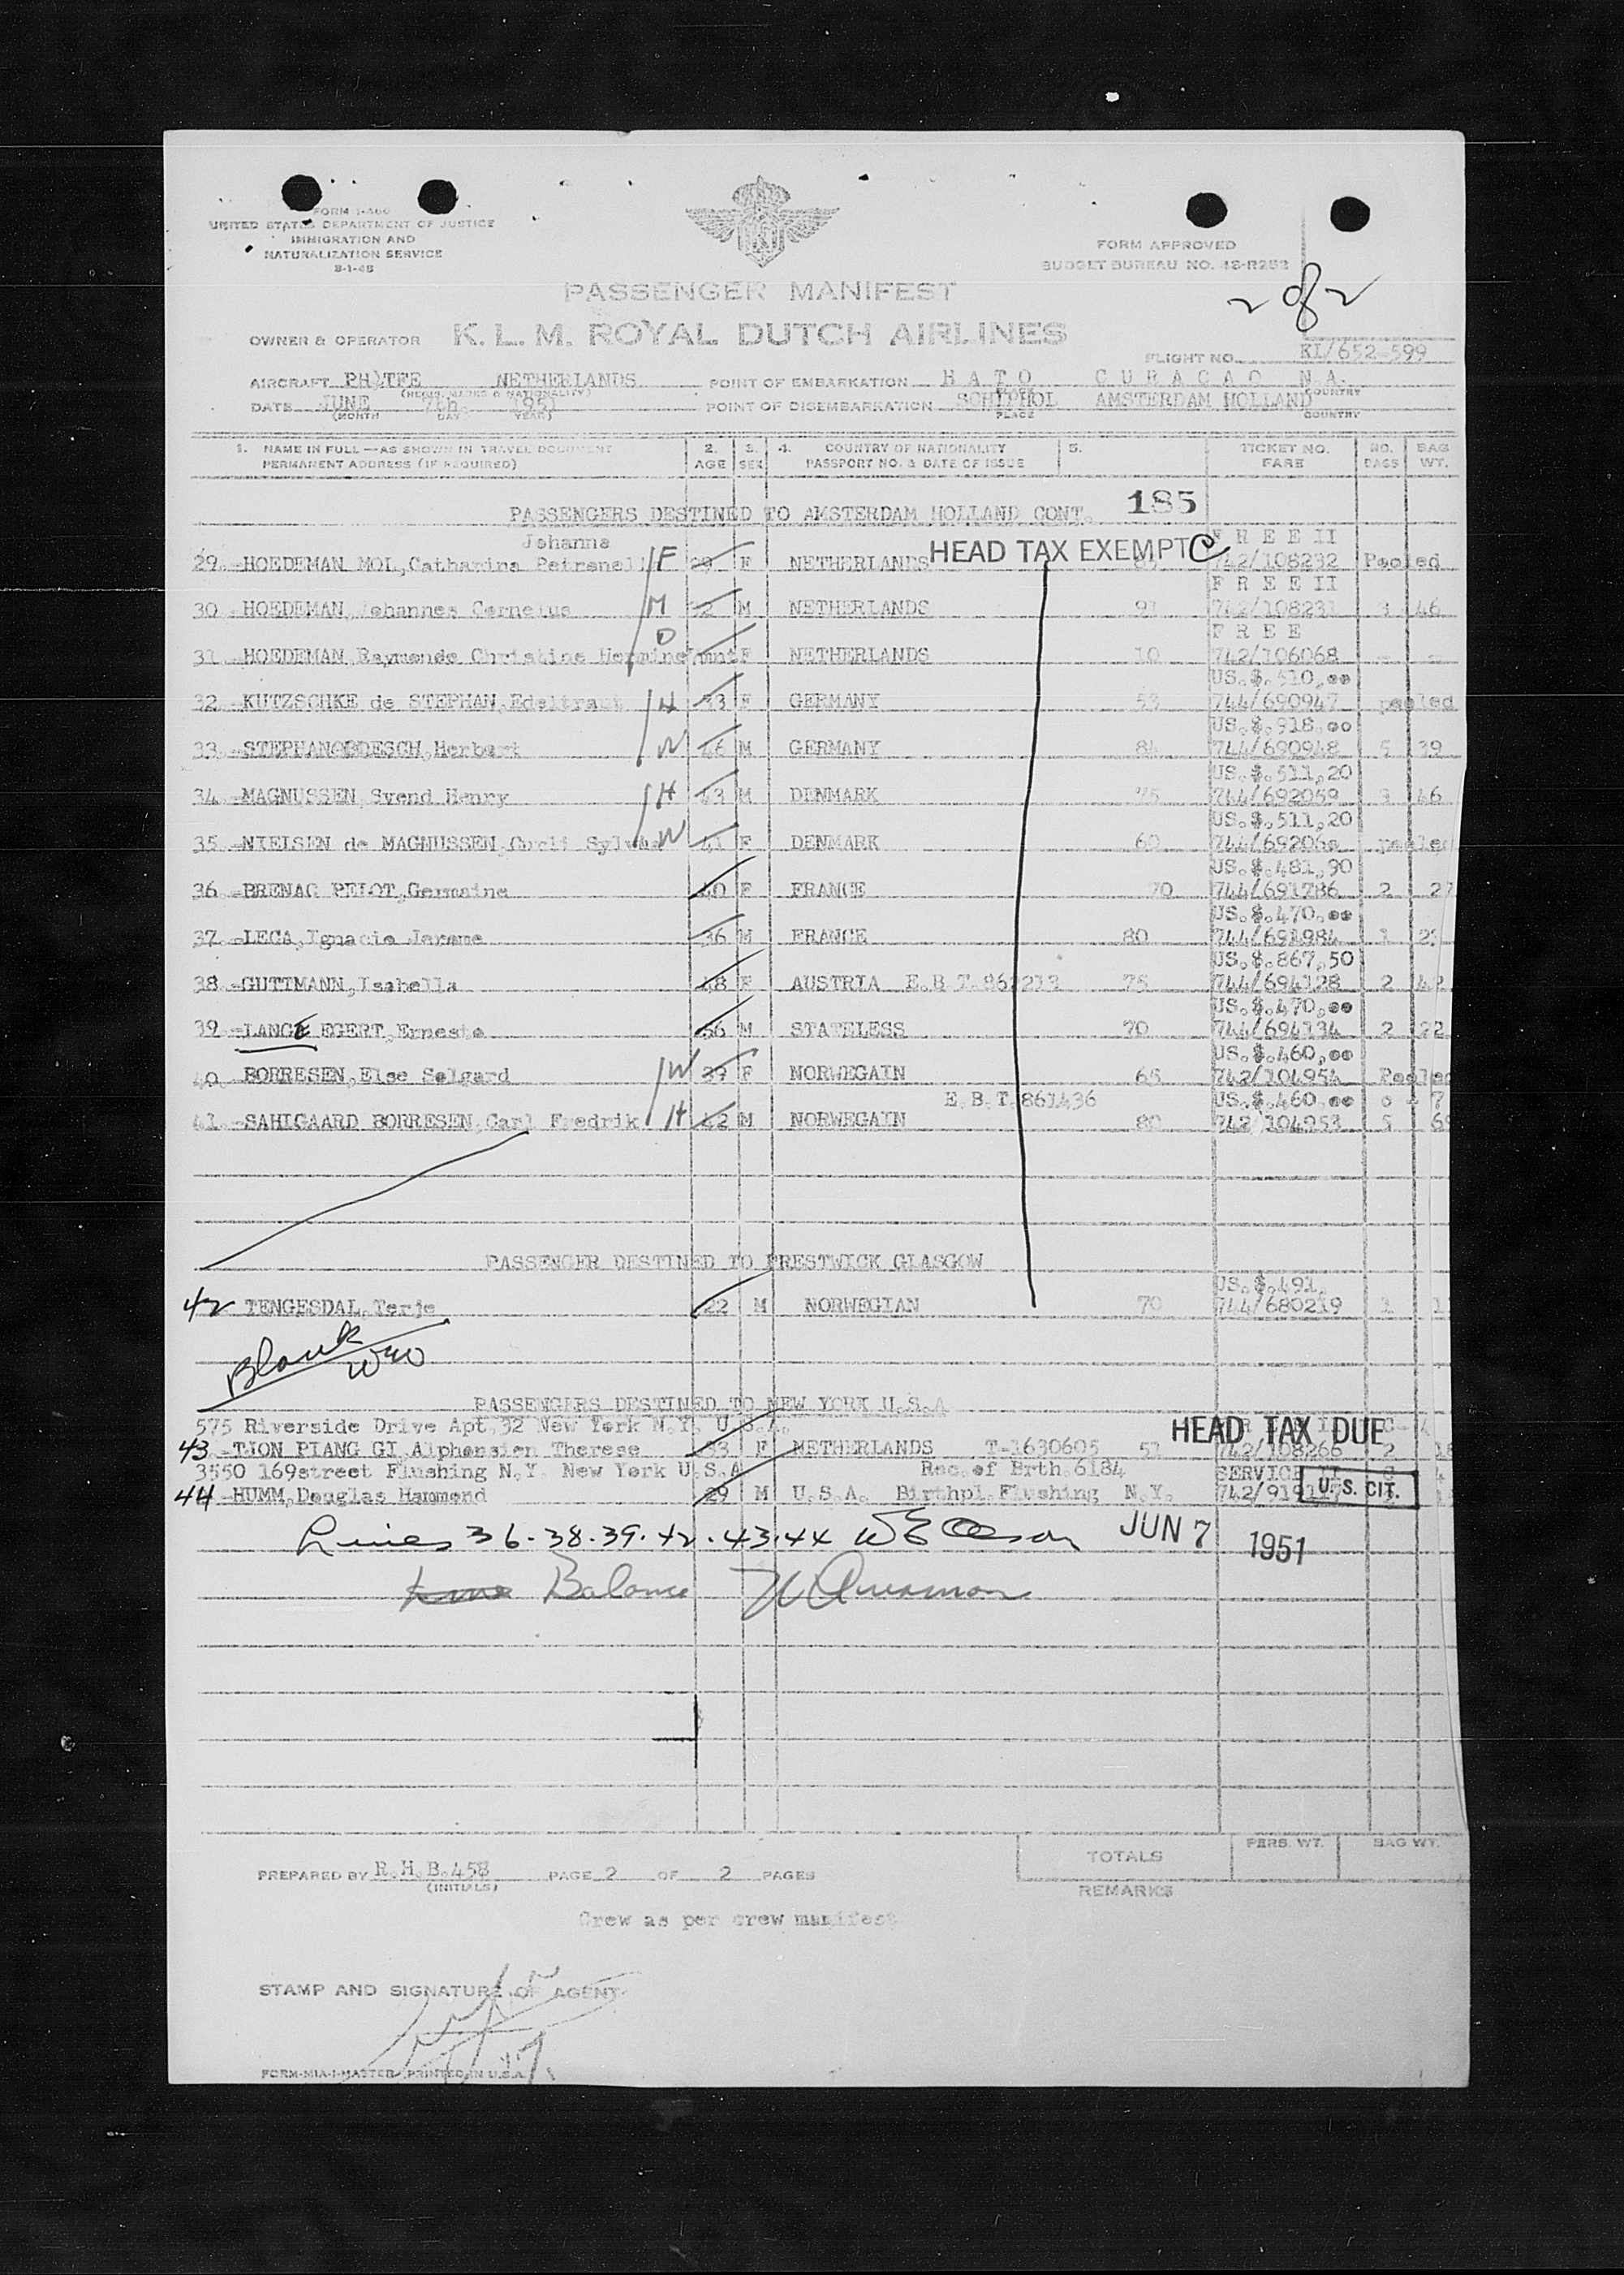 FORM I-466
UNITED STATES DEPARTMENT OF JUSTICE
IMMIGRATION AND
NATURALIZATION SERVICE
8-1-48
FORM APPROVED
BUDGET BUREAU NO. 43-R252
2 of 2
PASSENGER MANIFEST
OWNER & OPERATOR K. L. M. ROYAL DUTCH AIRLINES
FLIGHT NO. KL/652-599
AIRCRAFT PH)TFE NETHERLANDS POINT OF EMBARKATION H A T O C U R A C A O N.A.
(REGIS. MARKS & NATIONALITY) PLACE COUNTRY
DATE JUNE 7th. 1951 POINT OF DISEMBARKATION SCHIPHOL AMSTERDAM HOLLAND
(MONTH DAY YEAR) PLACE COUNTRY
1. NAME IN FULL—AS SHOWN IN TRAVEL DOCUMENT 2. 3. 4. COUNTRY OF NATIONALITY 5. TICKET NO. NO. BAG
PERMANENT ADDRESS (IF REQUIRED) AGE SEX PASSPORT NO. & DATE OF ISSUE FARE BAGS WT.
185
PASSENGERS DESTINED TO AMSTERDAM HOLLAND CONT.
Johanna HEAD TAX EXEMPT F R E E II
29.-HOEDEMAN MOL,Catharina Petronel F F NETHERLANDS 742/108232 Pooled
F R E E II
30 HOEDEMAN, Johannes Cornelus M 2 M NETHERLANDS 91 742/108231 3 46
D F R E E
31 HOEDEMAN Raymonde Christina Hermine mnt F NETHERLANDS 10 742/106068 - -
US.$.510,00
32.-KUTZSCHKE de STEPHAN,Edeltraut H 33 F GERMANY 53 744/690947 pooled
US.$.918.00
33.-STEPHANOEDESCH,Herbert W 46 M GERMANY 84 744/690948 5 39
US.$.511,20
34.-MAGNUSSEN,Svend Henry H 43 M DENMARK 75 744/692059 3 46
US.$.511,20
35.-NIELSEN de MAGNUSSEN, W 41 F DENMARK 60 744/692060 pooled
US.$.481,90
36.-BRENAC PELOT,Germaine 40 F FRANCE 70 744/691786 2 27
US.$.470,00
37.-LECA,Ignacio Jerome 36 M FRANCE 80 744/691984 1
US.$.867,50
38.-GUTTMANN,Isabella 48 F AUSTRIA E.B.T.861213 75 744/694128 2 42
US.$.470,00
39.-LANGE EGERT,Ernesto 56 M STATELESS 70 744/694134 2 22
US.$.460,00
40 BORRESEN,Else Solgard W 39 F NORWEGAIN 65 742/104954 Pooled
E.B.T.861436 US.$.460,00
41.-SAHLGAARD BORRESEN,Carl Fredrik H 42 M NORWEGAIN 80 742/104953 5
PASSENGER DESTINED TO PRESTWICK GLASGOW
US.$.491,
42 TENGESDAL,Terje 22 M NORWEGIAN 70 744/680219 1
Blank
WEO
PASSENGERS DESTINED TO NEW YORK U.S.A
575 Riverside Drive Apt.32 New York N.Y. U.S.A. HEAD TAX DUE
43 -TJON PIANG GI,Alphonsien Therese 33 F NETHERLANDS T-1630605 51 742/108266 2 18
3550 169street Flushing N.Y. New York U.S.A Rec.of Brth 6184 SERVICE
44 -HUMM,Douglas Hammond 29 M U.S.A. Birthpl.Flushing N.Y. U. S. CIT.
Lines 36-38-39-42-43-44 W E Oleson JUN 7 1951
Balance
TOTALS PERS. WT. BAG WT.
PREPARED BY R.H.B.458 PAGE 2 OF 2 PAGES
(INITIALS)
REMARKS
Crew as per crew manifest
STAMP AND SIGNATURE OF AGENT
FORM-MIA-1-MASTER-PRINTED IN U.S.A.